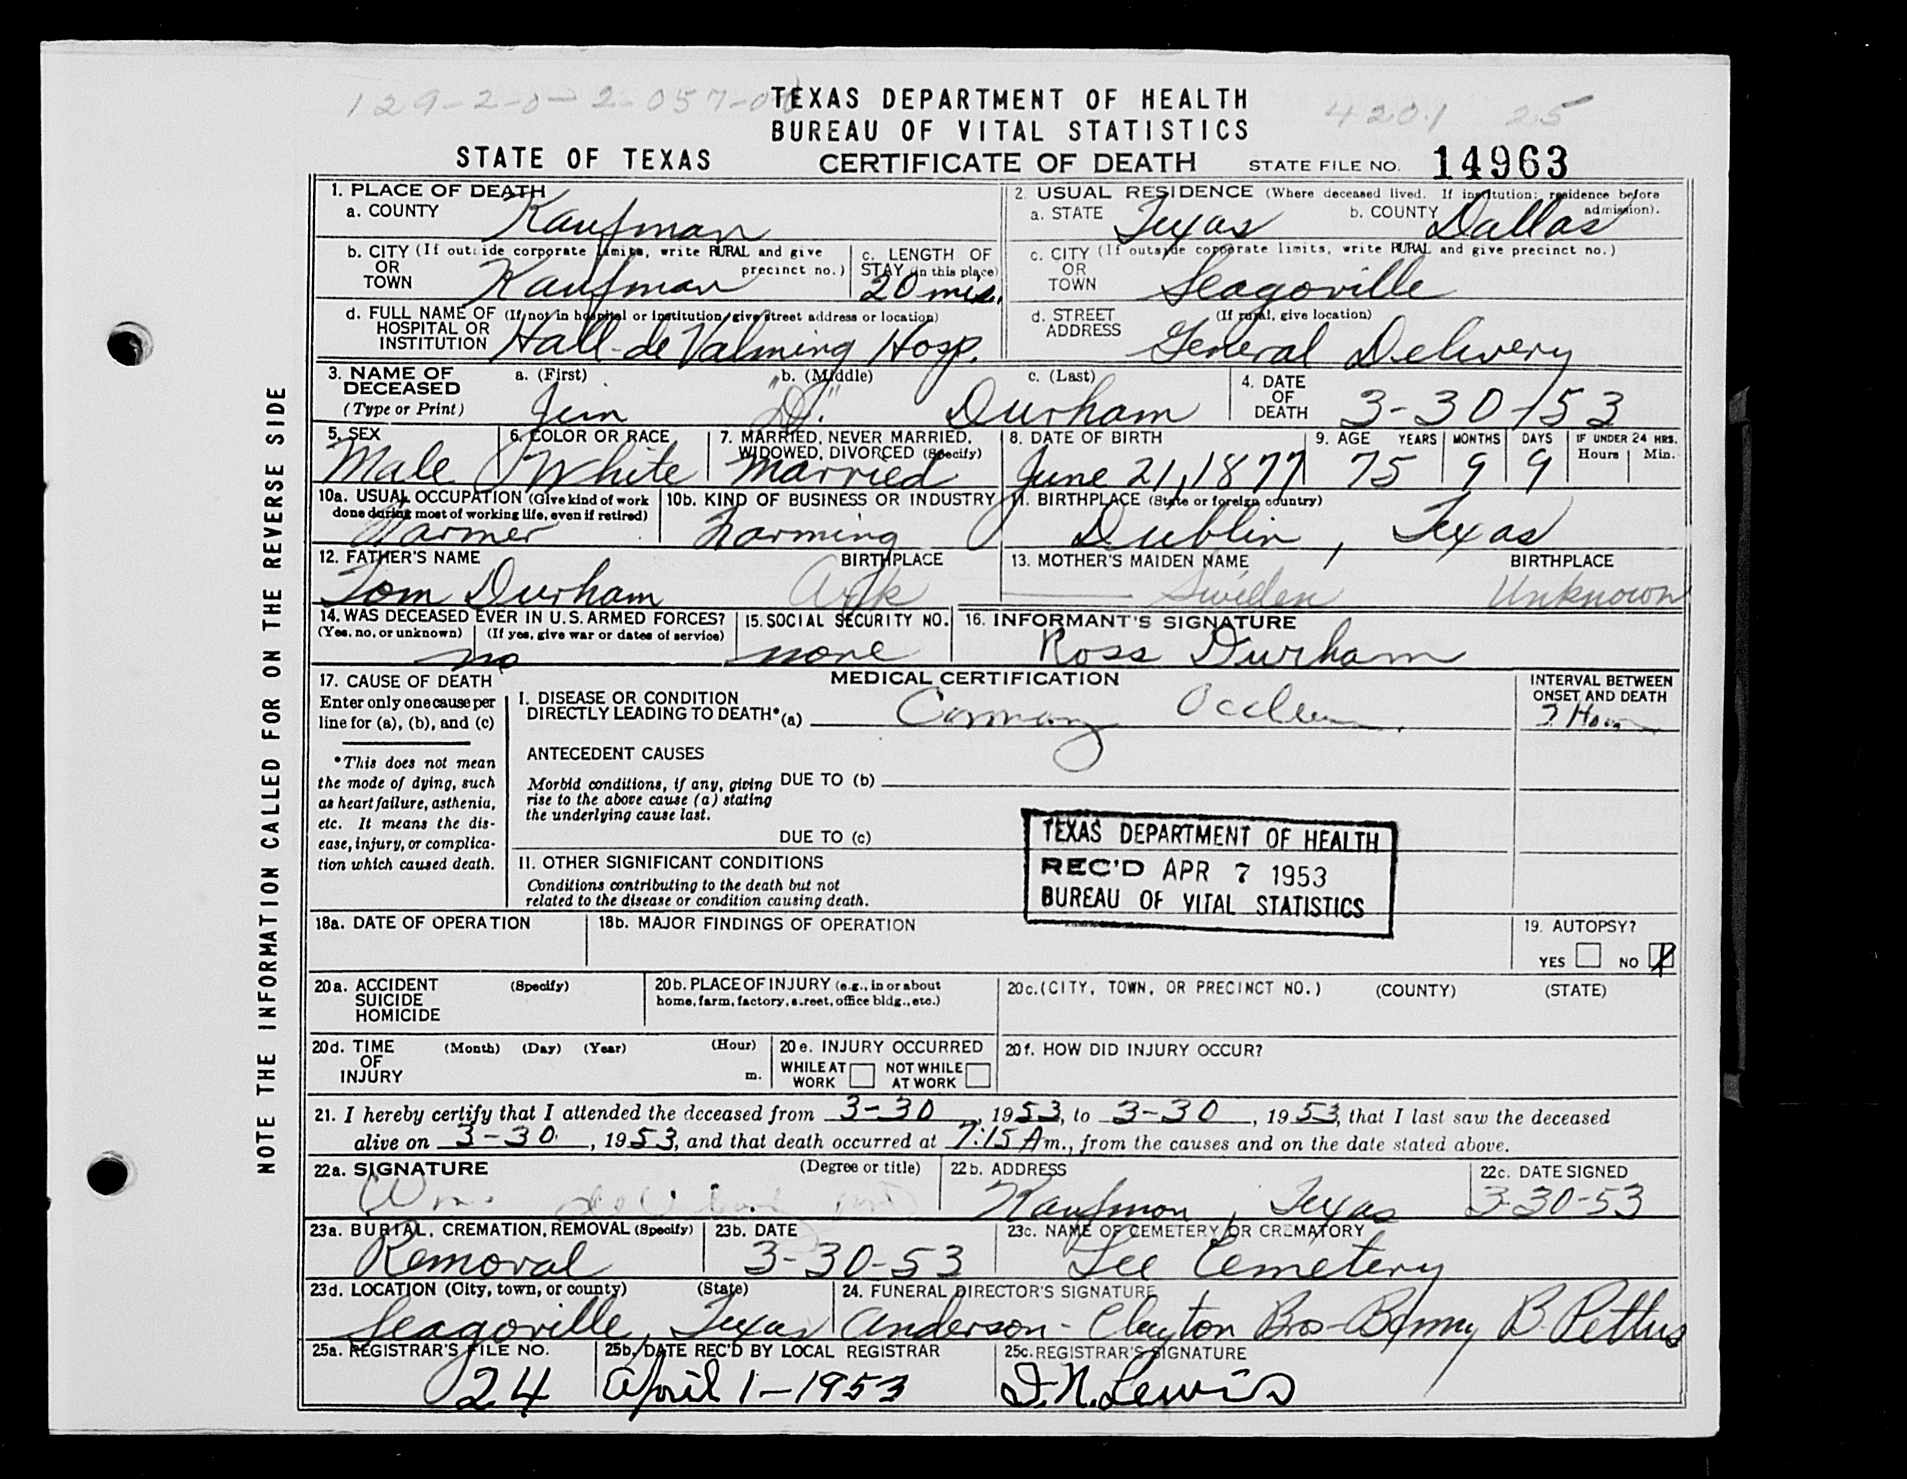 129-2-0-2-057-0
TEXAS DEPARTMENT OF HEALTH
4201 25
BUREAU OF VITAL STATISTICS
STATE OF TEXAS CERTIFICATE OF DEATH STATE FILE NO. 14963
1. PLACE OF DEATH
a. COUNTY Kaufman
2. USUAL RESIDENCE (Where deceased lived. If institution; residence before admission).
a. STATE Texas b. COUNTY Dallas
b. CITY (If outside corporate limits, write RURAL and give precinct no.)
OR
TOWN Kaufman
c. LENGTH OF
STAY (in this place)
20 mis.
c. CITY (If outside corporate limits, write RURAL and give precinct no.)
OR
TOWN Seagoville
d. FULL NAME OF (If not in hospital or institution, give street address or location)
HOSPITAL OR
INSTITUTION Hall-de Valming Hosp.
d. STREET (If rural, give location)
ADDRESS General Delivery
3. NAME OF
DECEASED
(Type or Print)
a. (First) b. (Middle) c. (Last)
Jim "D." Durham
4. DATE
OF
DEATH 3-30-53
5. SEX
Male
6. COLOR OR RACE
White
7. MARRIED, NEVER MARRIED,
WIDOWED, DIVORCED (Specify)
married
8. DATE OF BIRTH
June 21, 1877
9. AGE YEARS MONTHS DAYS IF UNDER 24 HRS.
Hours Min.
75 9 9
10a. USUAL OCCUPATION (Give kind of work
done during most of working life, even if retired)
Farmer
10b. KIND OF BUSINESS OR INDUSTRY
Farming
11. BIRTHPLACE (State or foreign country)
Dublin, Texas
12. FATHER'S NAME BIRTHPLACE
Tom Durham Ark
13. MOTHER'S MAIDEN NAME BIRTHPLACE
Swiden Unknown
14. WAS DECEASED EVER IN U.S. ARMED FORCES?
(Yes, no, or unknown) (If yes, give war or dates of service)
no
15. SOCIAL SECURITY NO.
none
16. INFORMANT'S SIGNATURE
Ross Durham
17. CAUSE OF DEATH
Enter only one cause per
line for (a), (b), and (c)
*This does not mean
the mode of dying, such
as heart failure, asthenia,
etc. It means the dis-
ease, injury, or complica-
tion which caused death.
MEDICAL CERTIFICATION
INTERVAL BETWEEN
ONSET AND DEATH
I. DISEASE OR CONDITION
DIRECTLY LEADING TO DEATH* (a) Coronary Occlusion
ANTECEDENT CAUSES
Morbid conditions, if any, giving
rise to the above cause (a) stating
the underlying cause last.
DUE TO (b)
DUE TO (c)
II. OTHER SIGNIFICANT CONDITIONS
Conditions contributing to the death but not
related to the disease or condition causing death.
TEXAS DEPARTMENT OF HEALTH
REC'D APR 7 1953
BUREAU OF VITAL STATISTICS
18a. DATE OF OPERATION
18b. MAJOR FINDINGS OF OPERATION
19. AUTOPSY?
YES NO X
20a. ACCIDENT (Specify)
SUICIDE
HOMICIDE
20b. PLACE OF INJURY (e.g., in or about
home, farm, factory, street, office bldg., etc.)
20c. (CITY, TOWN, OR PRECINCT NO.) (COUNTY) (STATE)
20d. TIME (Month) (Day) (Year) (Hour)
OF
INJURY m.
20e. INJURY OCCURRED
WHILE AT WORK NOT WHILE AT WORK
20f. HOW DID INJURY OCCUR?
21. I hereby certify that I attended the deceased from 3-30, 1953, to 3-30, 1953, that I last saw the deceased
alive on 3-30, 1953, and that death occurred at 7:15 Am., from the causes and on the date stated above.
22a. SIGNATURE (Degree or title)
Wm.
22b. ADDRESS
Kaufman, Texas
22c. DATE SIGNED
3-30-53
23a. BURIAL, CREMATION, REMOVAL (Specify)
Removal
23b. DATE
3-30-53
23c. NAME OF CEMETERY OR CREMATORY
Lee Cemetery
23d. LOCATION (City, town, or county) (State)
Seagoville, Texas
24. FUNERAL DIRECTOR'S SIGNATURE
Anderson-Clayton Bros-Benny B. Pettus
25a. REGISTRAR'S FILE NO.
24
25b. DATE REC'D BY LOCAL REGISTRAR
April 1-1953
25c. REGISTRAR'S SIGNATURE
D.N. Lewis
NOTE THE INFORMATION CALLED FOR ON THE REVERSE SIDE